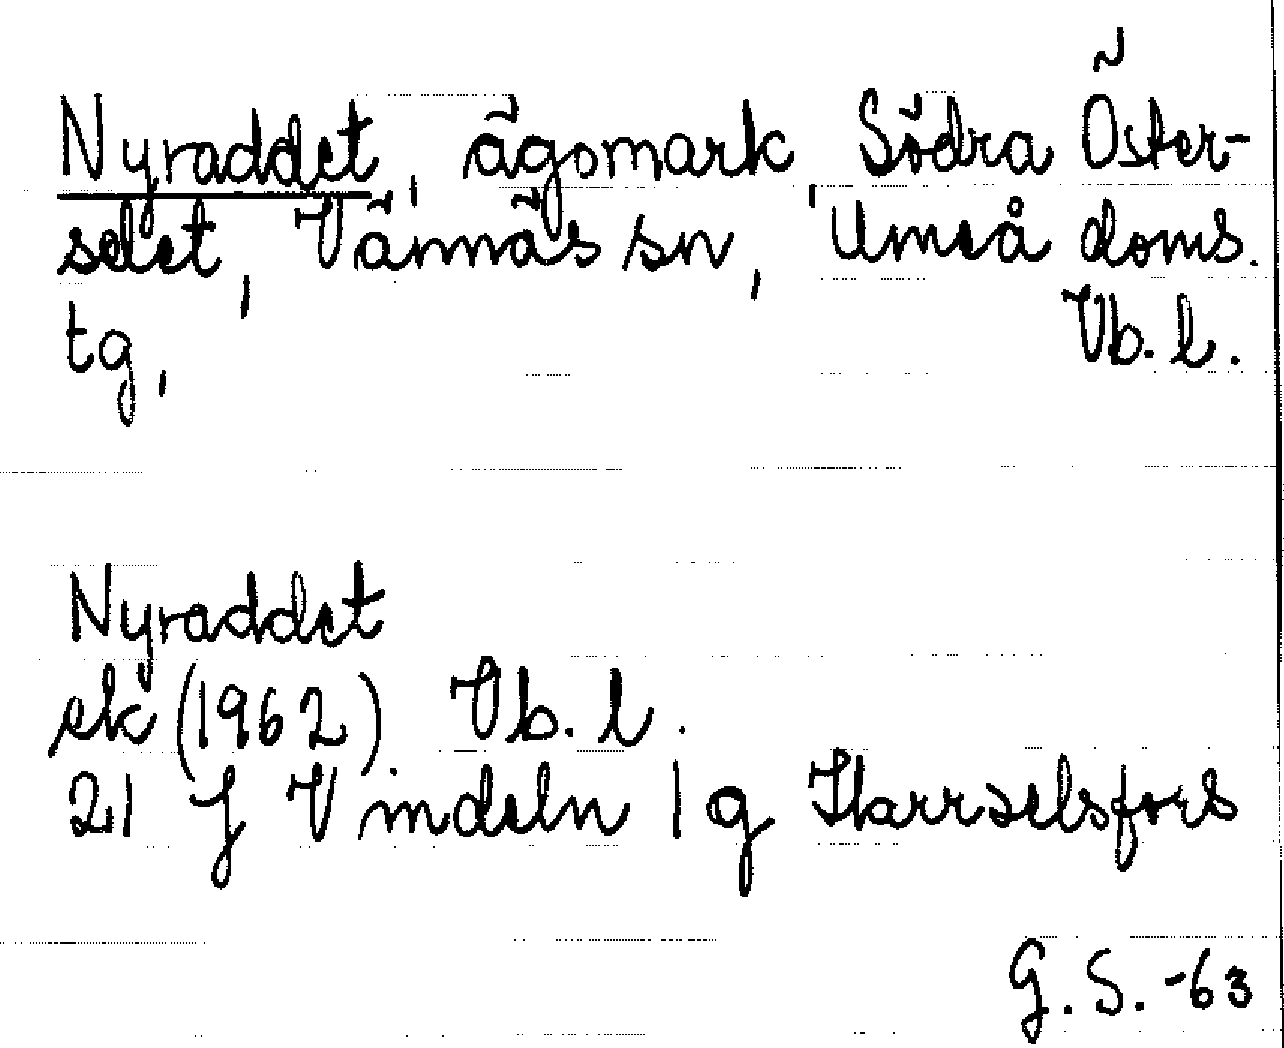 Nyraddet, ägomark, Södra Öster-
selet, Vännäs sn, Umeå doms.
tg, Vb. l.
Nyraddet
ek (1962). Vb. l.
21 J Vindeln 1 g Harrselsfors
G. S. -63